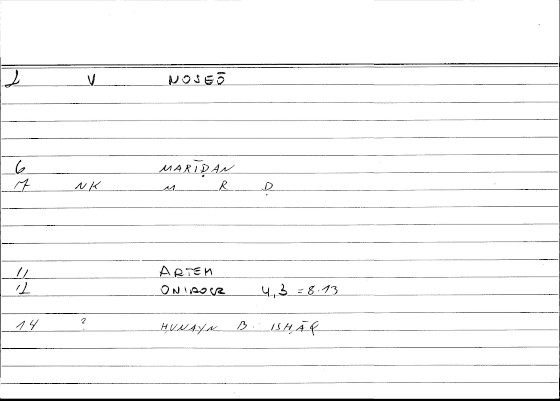 1 V NOSEŌ
6 MARĪḌAN
7 NK M R Ḍ
11 ARTEM
12 ONIROCR 4,3 = 8.13
14 ? ḤUNAYN B. ISḤĀQ